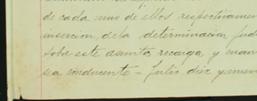 de cada uno de ellos respectivamen
insercion de la determinacion jud
sobre este asunto recaiga, y man
sa rondamente - Julio diez y nueve